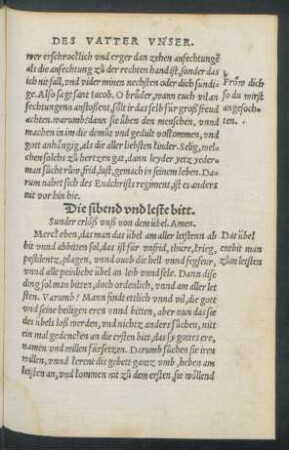 DES VATTER VNSER.
wer erschrocklich vnd erger dan zehen anfechtungē
als die anfechtung zů der rechten hand ist, sonder das
ich nit fall, vnd wider minen nechsten oder dich sundi-
ge. Also sagt sant Iacob. O brůder, wann euch vil an
fechtungenn anstossent, sölt ir das selb für groß freud
achten. warumb? dann sie üben den menschen, vnnd
machen in im die demüt vnd gedult volkommen, vnd
gott anhängig, als die aller liebsten kinder. Selig, wel-
chen solchs zů hertzen gat, dann leyder yetz yeder-
man sůcht růw, frid, lust, gemach in seinem leben. Da-
rum nahet sich des Endchrists regiment, ist es anders
nit vor hin hie.
Fröw dich
so du wirst
angefoch-
ten.
Die sibend vnd leste bitt.
Sunder erlöß vnß von dem übel. Amen.
Merck eben, das man das übel am aller letstenn ab
bit vnnd abbitten sol, das ist für vnfrid, thüre, krieg,
pestilentz, plagen, vnnd ouch die hell vnnd fegfeur,
vnnd alle peinliche übel an leib vnnd sele. Dann dise
ding sol man bitten, doch ordenlich, vnnd am aller let
sten. Varumb? Mann findt ettlich vnnd vil, die gott
vnd seine heiligen eren vnnd bitten, aber nun das sie
des übels loß werden, vnd nichtz anders sůchen, nitt
ein mal gedencken an die ersten bitt, das sy gottes ere,
namen vnd willen fürsetzen. Darumb sůchen sie iren
willen, vnnd kerent dis gebett gantz vmb, heben am
letsten an, vnd kommen nit zů dem ersten, sie wöllend
Dat übel
entbit man
zům letsten